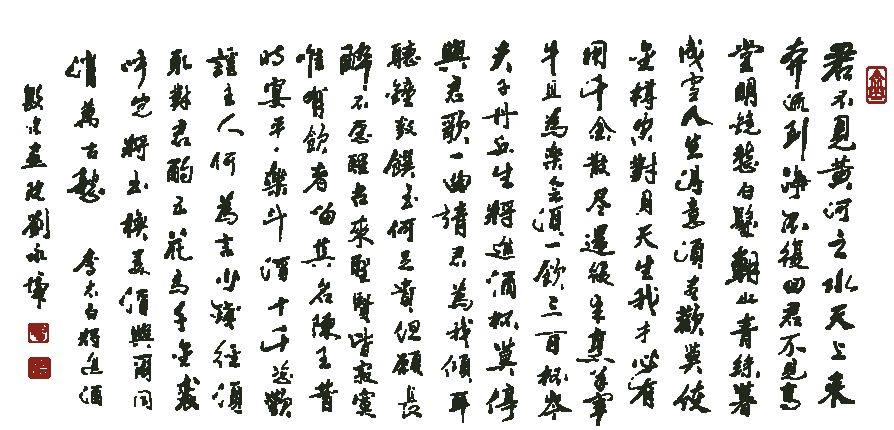 君不見黃河之水天上來
奔流到海不復回君不見高
堂明鏡悲白髮朝如青絲暮
成雪人生得意須盡歡莫使
金樽空對月天生我才必有
用千金散盡還復來烹羊宰
牛且為樂會須一飲三百杯岑
夫子丹丘生將進酒杯莫停
與君歌一曲請君為我傾耳
聽鐘鼓饌玉何足貴但願長
醉不愿醒古來聖賢皆寂寞
惟有飲者留其名陳王昔
時宴平樂斗酒十千恣歡
謔主人何為言少錢徑須
取對君酌五花馬千金裘
呼兒將出換美酒與爾同
消萬古愁 李太白將進酒
畫院劉永